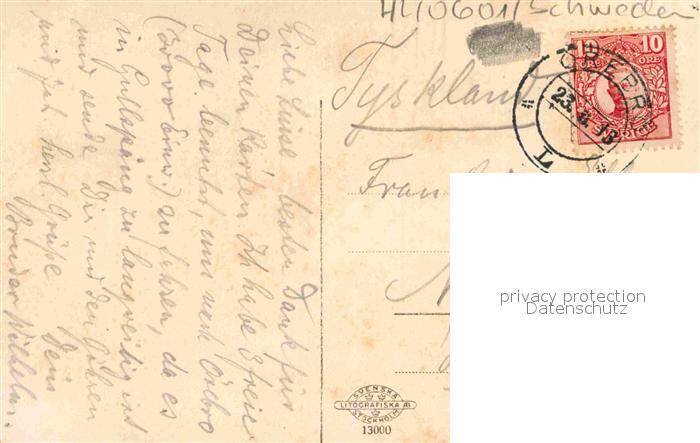 HL10601/Schweden
Tyskland
Frau
Liebe Luise besten Dank für
Deinen Karten. Ich habe 3 freie
Tage benutzt, um nach Örebro
(30000 Einw.) zu fahren, da es
in Gullspång zu langweilig ist
und sende Dir und den Gören
und Joh herzl. Grüße Dein
Bruder Wilhelm.
10 10
ÖRE ÖRE
SVERIGE
ÖREBRO
23. 8. 13
L
SVENSKA
LITOGRAFISKA AB
STOCKHOLM
13000
privacy protection
Datenschutz